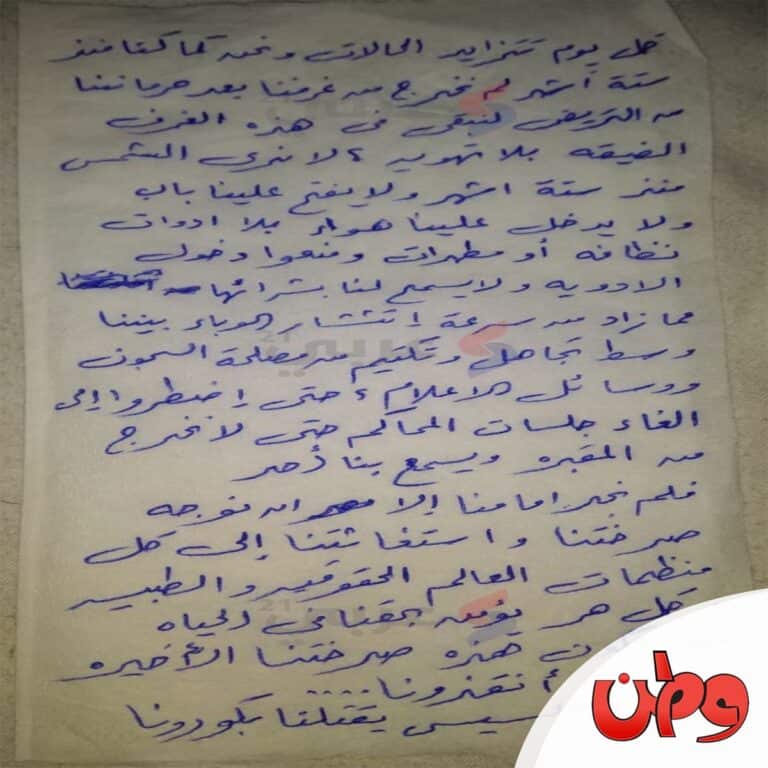 كل يوم تتزايد الحالات ونحن كما كنا منذ
ستة أشهر لم نخرج من غرفنا بعد حرماننا
من التريض لنبقى فى هذه الغرف
الضيقه بلا تهويه ، لا نرى الشمس
منذ ستة اشهر ولا يفتح علينا باب
ولا يدخل علينا هواء بلا ادوات
نظافه أو مطهرات ومنعوا دخول
الادويه ولا يسمح لنا بشرائها
مما زاد من سرعة إنتشار الوباء بيننا
وسط تجاهل وتكتيم من مصلحة السجون
ووسائل الاعلام ، حتى إضطروا إلى
الغاء جلسات المحاكم حتى لا نخرج
من المقبره ويسمع بنا أحد
فلم نجد امامنا إلا ان نوجه
صرختنا واستغاثتنا إلى كل
منظمات العالم الحقوقيه والطبيه
كل حر يؤمن بحقنا فى الحياه
هذه صرختنا الأخيره
أنقذونا ....
السيسى يقتلنا بكورونا
عربي
وطن